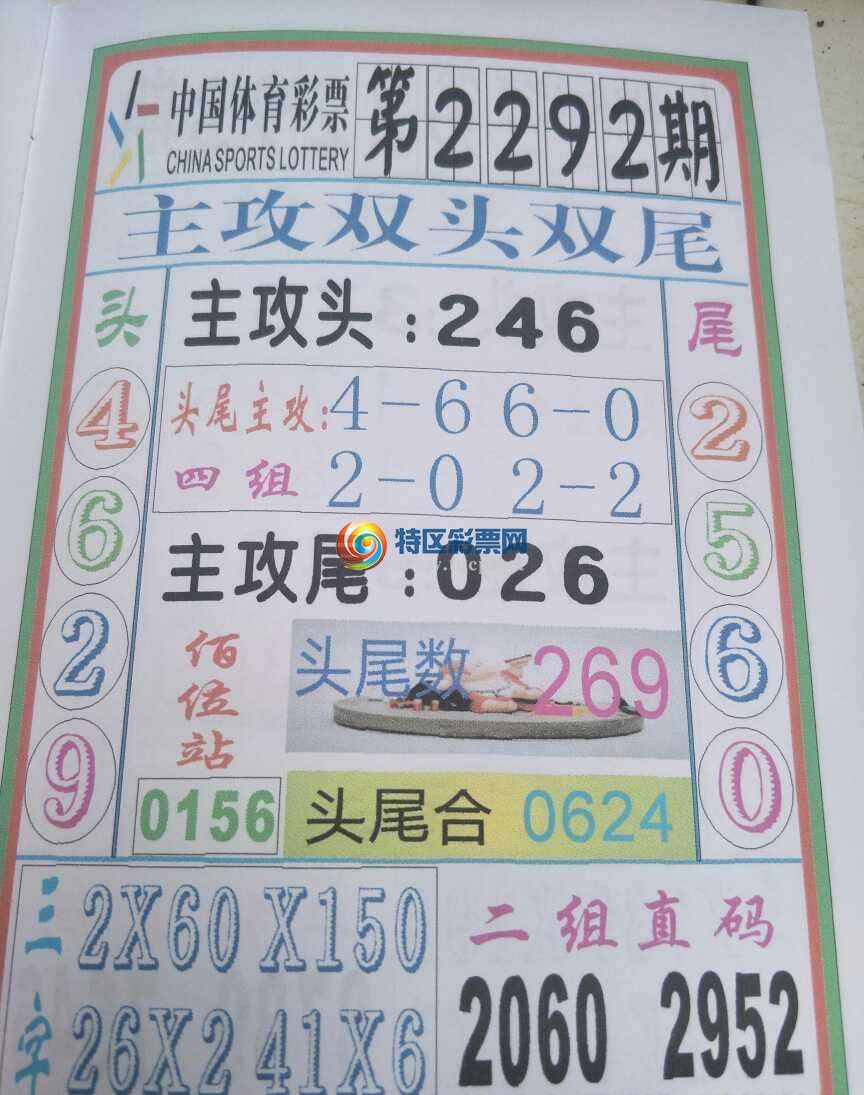 中国体育彩票 第2292期
CHINA SPORTS LOTTERY
主攻双头双尾
头 主攻头:246 尾
4 头尾主攻:4-6 6-0 2
四组 2-0 2-2
6 5
特区彩票网
主攻尾:026
2 佰位站 头尾数 269 6
9 0156 头尾合 0624 0
三字 2X60 X150 二组直码
26X2 41X6 2060 2952